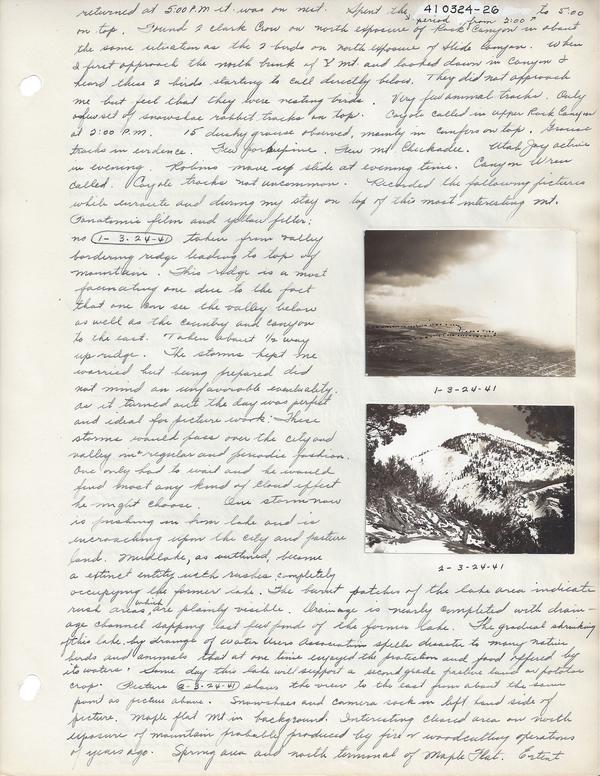 returned at 5:00 P.M it was on nest. Spent the period from 2:00 to 5:00
41 0324-26
on top. Found 2 clark Crow on north exposure of Rock Canyon in about
the same situation as the 2 birds on north exposure of Slide Canyon. When
I first approach the north bank of Y Mt. and looked down in canyon I
heard these 2 birds starting to call directly below. They did not approach
me but feel that they were nesting birds. Very few animal tracks. Only
a few set of snowshoe rabbit tracks on top. Coyote called in upper Rock Canyon
at 2:00 P.M. 15 dusky grouse observed, mainly in conifers on top. Grouse
tracks in evidence. Few porkupine. Few mt Chickadee. Utah Jay active
in evening. Robins move up slide at evening time. Canyon Wren
called. Coyote tracks not uncommon. Recorded the following pictures
while enroute and during my stay on top of this most interesting mt.
Panatomic film and yellow filter:
no 1-3-24-41 taken from valley
bordering ridge leading to top of
mountain. This ridge is a most
facinating one due to the fact
that one can see the valley below
as well as the country and canyon
to the east. Taken about 1/2 way
up ridge. The storms kept me
worried but being prepared did
not mind an unfavorable eventuality.
As it turned out the day was perfect
and ideal for picture work. These
storms would pass over the city and
valley in regular and periodic fashion.
One only had to wait and he would
find most any kind of cloud effect
he might choose. One storm now
is pushing in from lake and is
encroaching upon the city and pasture
land. Mudlake, as outlined, became
a extinct entity with rushes completely
occupying the former lake. The burnt patches of the lake area indicate
rush areas, which are plainly visible. Drainage is nearly completed with drain-
age channel sapping last few pond of the former lake. The gradual shrinking
of this lake by drainage of Water Users Association spells disaster to many native
birds and animals that at one time enjoyed the protection and food offered by
its waters. Some day this lake will support a second grade pasture land or potatoe
crop. Picture 2-3-24-41 shows the view to the east from about the same
point as picture above. Snowshoes and camera sack in left hand side of
picture. Maple flat Mt in background. Interesting cleared area on north
exposure of mountain probably produced by fire or woodcutting operations
of years ago. Spring area and north terminal of Maple Flat. Extent
1-3-24-41
2-3-24-41